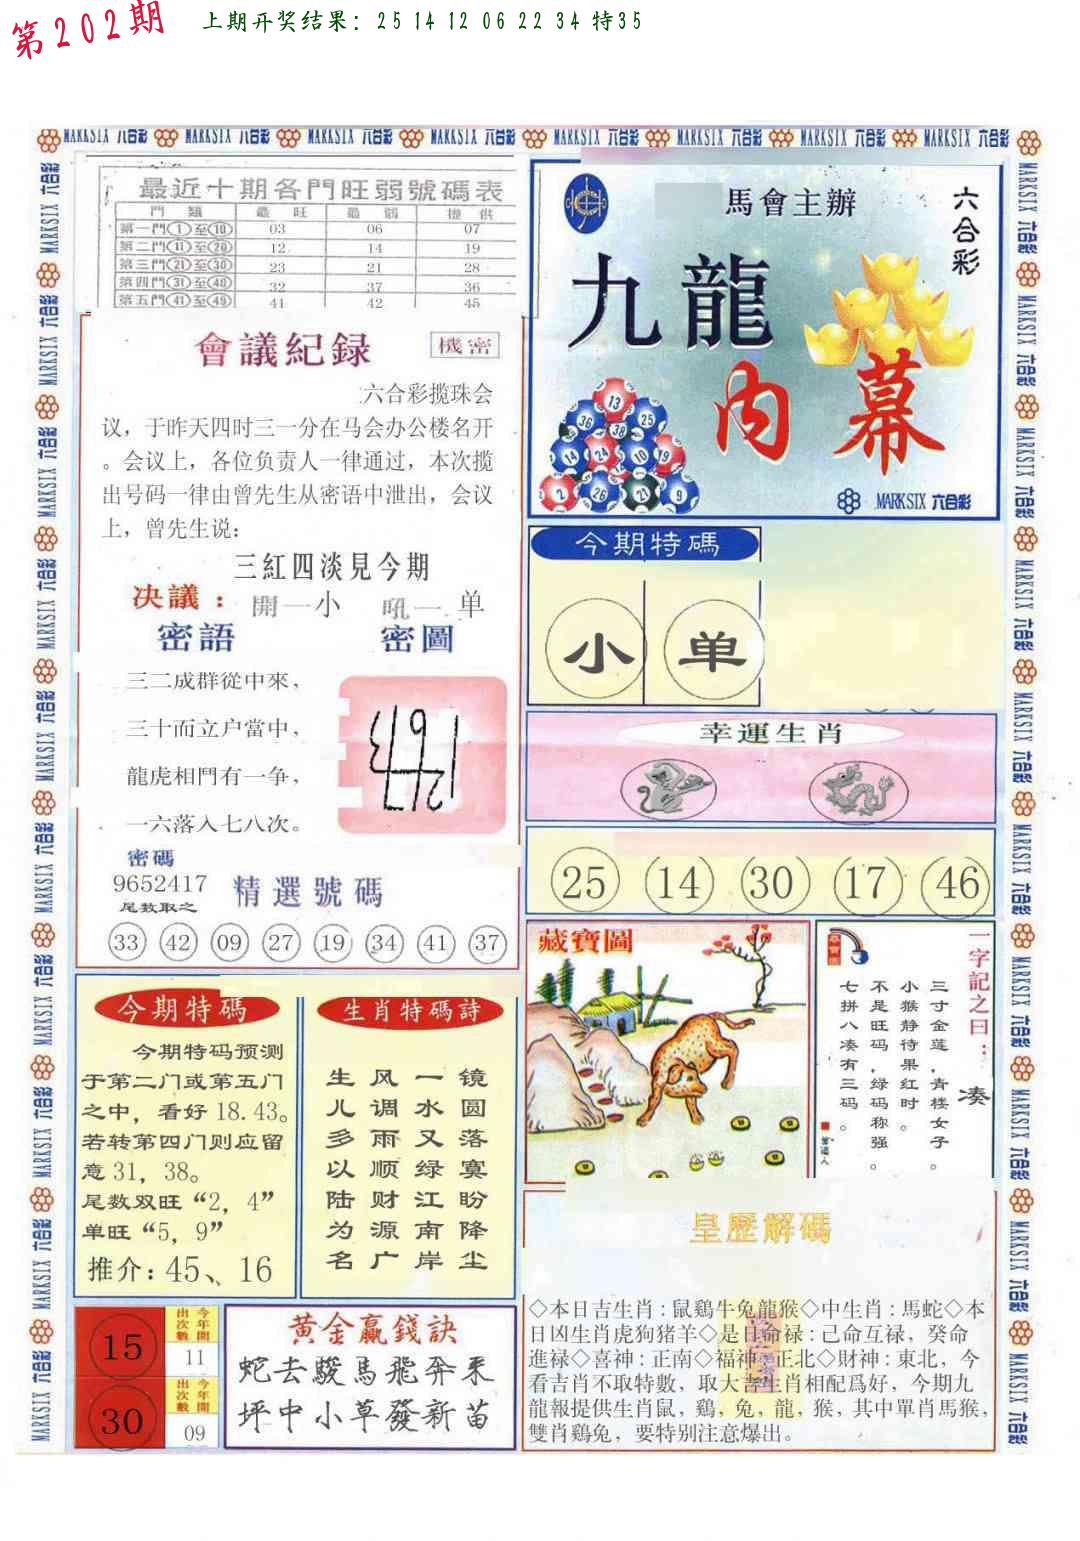 第202期
上期开奖结果: 25 14 12 06 22 34 特35
MARKSIX 六合彩 MARKSIX 六合彩 MARKSIX 六合彩 MARKSIX 六合彩 MARKSIX 六合彩 MARKSIX 六合彩 MARKSIX 六合彩 MARKSIX 六合彩
最近十期各門旺弱號碼表
門 類 最 旺 最 弱 提 供
第一門①至⑩ 03 06 07
第二門⑪至⑳ 12 14 19
第三門㉑至㉚ 23 21 28
第四門㉛至㊵ 32 37 36
第五門㊶至㊾ 41 42 45
會議紀録
機密
六合彩揽珠会
议，于昨天四时三一分在马会办公楼名开
。会议上，各位负责人一律通过，本次揽
出号码一律由曾先生从密语中泄出，会议
上，曾先生说:
三紅四淡見今期
决議： 開一小 吼一单
密語 密圖
三二成群從中來，
三十而立户當中，
龍虎相鬥有一争，
一六落入七八次。
密碼
9652417
尾数取之
精選號碼
33 42 09 27 19 34 41 37
馬會主辦
六合彩
九龍
内幕
13
36 25
38
14 24 10 19
2 26 21 9
MARKSIX 六合彩
今期特碼
小 单
幸運生肖
25 14 30 17 46
藏寶圖
一字記之曰：
凑
三寸金莲，青楼女子。
小猴静待果红时。
不是旺码，绿码称强。
七拼八凑有三码。
今期特碼
今期特码预测
于第二门或第五门
之中，看好18.43。
若转第四门则应留
意31，38。
尾数双旺“2，4”
单旺“5，9”
推介: 45、16
生肖特碼詩
生风一镜
儿调水圆
多雨又落
以顺绿寞
陆财江盼
为源南降
名广岸尘
15
今年開出次數
11
30
今年開出次數
09
黄金赢錢訣
蛇去駿馬飛奔来
坪中小草發新苗
皇歷解碼
◇本日吉生肖:鼠鷄牛兔龍猴◇中生肖:馬蛇◇本
日凶生肖虎狗猪羊◇是日命禄:己命互禄，癸命
進禄◇喜神:正南◇福神:正北◇財神:東北，今
看吉肖不取特數，取大吉生肖相配爲好，今期九
龍報提供生肖鼠，鷄，兔，龍，猴，其中單肖馬猴，
雙肖鷄兔，要特别注意爆出。